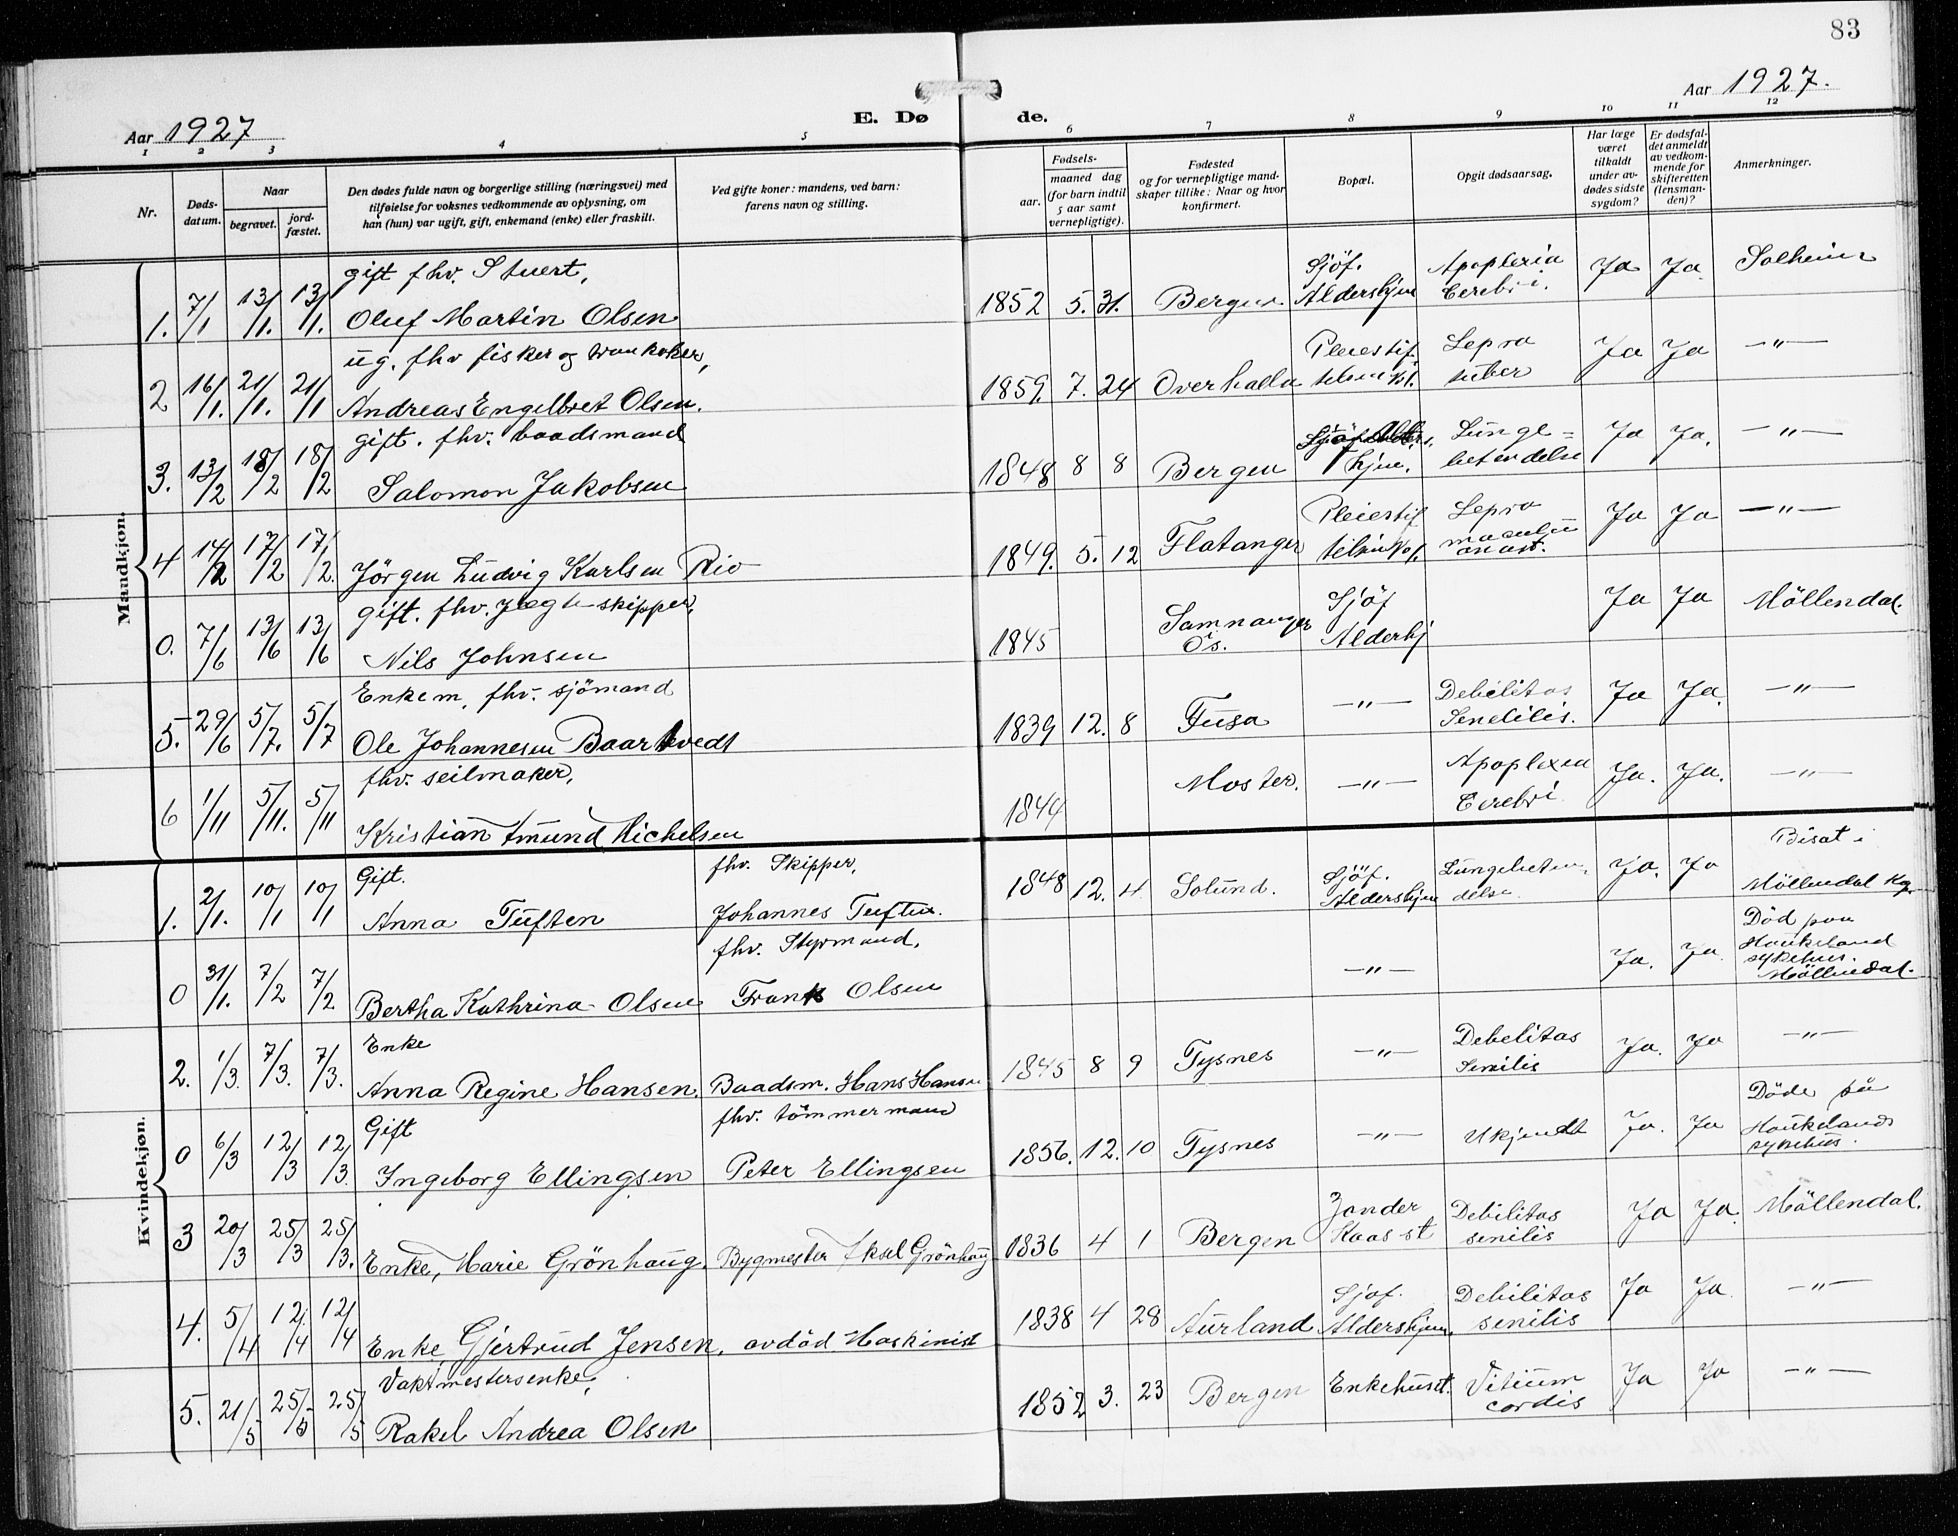 83
Aar 1927
E. Dø de.
Aar 1927.
1 2 3 4 5 6 7 8 9 10 11 12
Nr.
Døds-
datum.
Naar
begravet.
jord-
fæstet.
Den dødes fulde navn og borgerlige stilling (næringsvei) med
tilføielse for voksnes vedkommende av oplysning, om
han (hun) var ugift, gift, enkemand (enke) eller fraskilt.
Ved gifte koner: mandens, ved barn:
farens navn og stilling.
Fødsels-
aar.
maaned dag
(for barn indtil
5 aar samt
vernepligtige).
Fødested
og for vernepligtige mand-
skaper tillike: Naar og hvor
konfirmert.
Bopæl.
Opgit dødsaarsag.
Har læge
været
tilkaldt
under av-
dødes sidste
sygdom?
Er dødsfal-
det anmeldt
av vedkom-
mende for
skifteretten
(lensman-
den)?
Anmerkninger.
Mandkjøn.
gift fhv. Stuert,
1. 7/1 13/1. 13/1. Oluf Martin Olsen 1852 5. 31. Bergen Sjöf. Aldershjem Apoplexia Cerebri. Ja Ja Solheim
ug. fhv fisker og trankoker,
2 16/1. 21/1. 21/1 Andreas Engelbret Olsen. 1859. 7. 24 Overhalla Pleiestif. Lepra tuber Ja Ja -"-
gift. fhv. baadsmand
3. 13/2 18/2 18/2 Salomon Jakobsen 1848 8 8 Bergen hjem. Lunge=betendelse Ja Ja. -"-
4 14/2 17/2 17/2. Jörgen Ludvig Karlsen Rio 1849. 5. 12 Flatanger Pleiestif Lepra Ja Ja -"-
gift. fhv. Jægteskipper,
0. 7/6 13/6 13/6 Nils Johnsen 1845 Samnanger i Os. Sjöf Alderhj Ja Ja Möllendal.
Enkem, fhv. sjömand
5. 29/6 5/7. 5/7 Ole Johannesen Baartvedt 1839 12. 8 Fusa -"- Debilitas Senelilis. Ja Ja. -"-
fhv. seilmaker,
6 1/11 5/11. 5/11 Kristian Amund Michelsen 1844 Moster. -"- Apoplexia Cerebri Ja. Ja. -"-
Kvindekjøn.
Gift. fhv. Skipper,
1. 2/1. 10/1 10/1 Anna Tuften Johannes Tuften. 1848 12. 4 Solund. Sjöf. Aldershjem Lungebetendelse. Ja. Ja Bisat i Möllendal Kp.
fhv. Styrmand.
0 31/1. 7/2 7/2 Bertha Kathrina Olsen Frank Olsen -"- Ja. Ja Död paa Haukeland sykehus. Möllendal.
Enke
2. 1/3. 7/3. 7/3. Anna Regine Hansen. Baadsm. Hans Hansen 1845 8 9 Tysnes -"- Debelitas Senilis Ja. Ja -"-
Gift fhv. tömmermand
0 6/3 12/3 12/3. Ingeborg Ellingsen Peter Ellingsen 1856. 12. 10 Tysnes -"- Ukjendt Ja. Ja Döde på Haukelands sykehus.
3 20/3 25/3 25/3. Enke, Marie Grönhaug. Bygmester Aksel Grönhaug 1836 4 1 Bergen Debilitas senilis Ja Ja. Möllendal.
4. 5/4 12/4 12/4 Enke Gjertrud Jensen, avdöd Maskinist 1838 4 28 Aurland Sjøf. Aldershjem. Debilitas senilis Ja Ja. -"-
Vaktmestersenke,
5. 21/5 25/5 25/5 Rakel Andrea Olsen 1852 3. 23 Bergen Enkehuset. Vitium cordis Ja Ja -"-